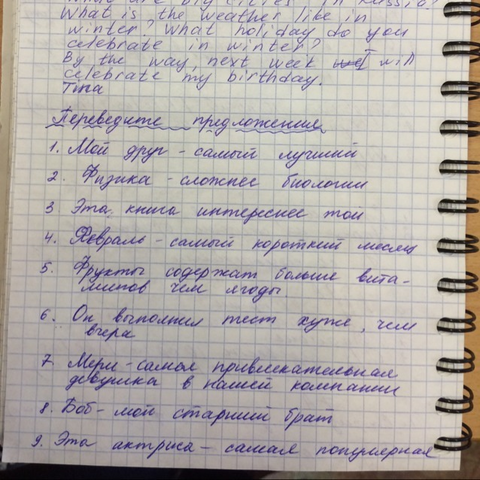 are big cities in Russia?
What is the weather like in
winter? What holiday do you
celebrate in winter?
By the way, next week I will
celebrate my birthday.
Tina
Переведите предложения
1. Мой друг - самый лучший
2. Физика - сложнее биологии
3 Эта книга интереснее той
4. Февраль - самый короткий месяц
5. Фрукты содержат больше вита-
минов чем ягоды
6. Он выполнил тест хуже, чем
вчера
7. Мери - самая привлекательная
девушка в нашей компании
8. Боб - мой старший брат
9. Эта актриса - самая популярная